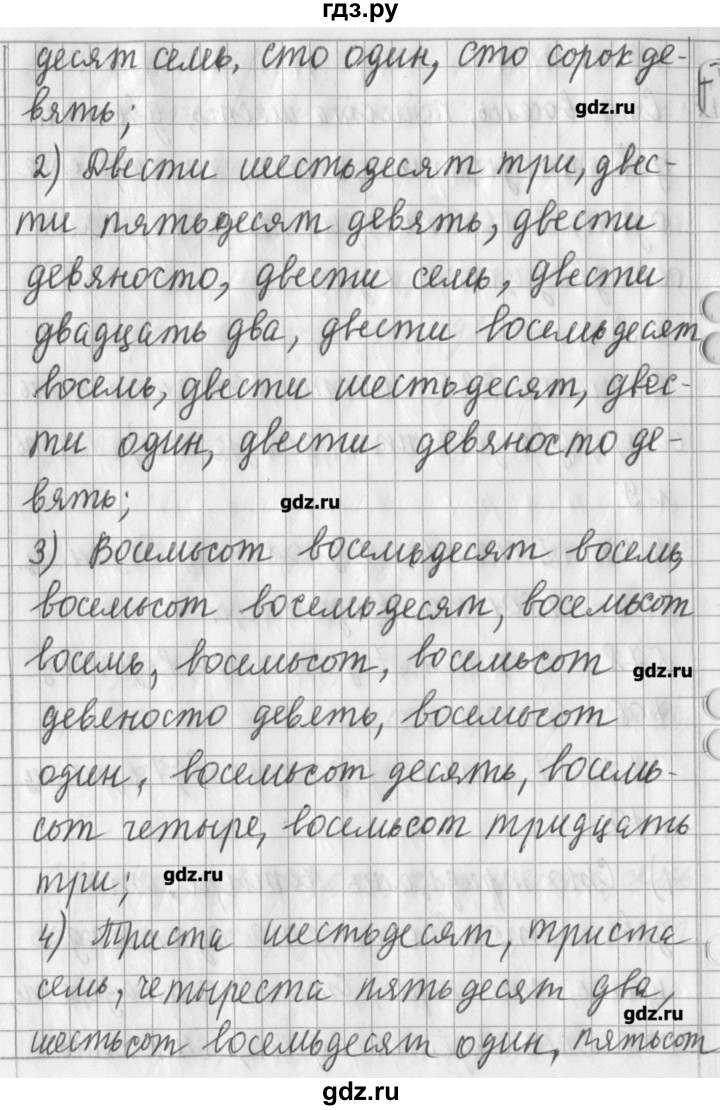 гдз.ру
десят семь, сто один, сто сорок де-
вять;
gdz.ru
2) Двести шестьдесят три, двес-
ти пятьдесят девять, двести
девяносто, двести семь, двести
двадцать два, двести восемьдесят
восемь, двести шестьдесят, двес-
ти один, двести девяносто де-
вять;
gdz.ru
3) Восемьсот восемьдесят восемь,
восемьсот восемьдесят, восемьсот
восемь, восемьсот, восемьсот
gdz.ru
девяносто девять, восемьсот
один, восемьсот десять, восемь-
сот четыре, восемьсот тридцать
три;
gdz.ru
4) Триста шестьдесят, триста
семь, четыреста пятьдесят два,
gdz.ru
шестьсот восемьдесят один, пятьсот
gdz.ru